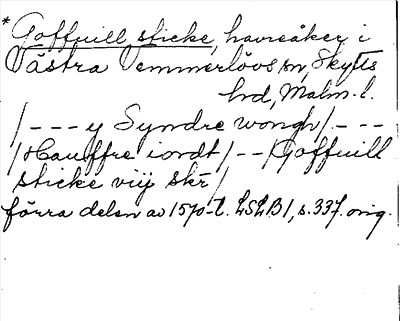 * Goffuill sticke, havreåker i
Västra Vemmerlövs sn, Skytts
hd, Malm. l.
/ - - - y Syndre wongh / . - - -
/ Hauffre iordt / - - / Goffuill
sticke viij skr /
förra delen av 1570-t. LSLB 1, s. 337. orig.